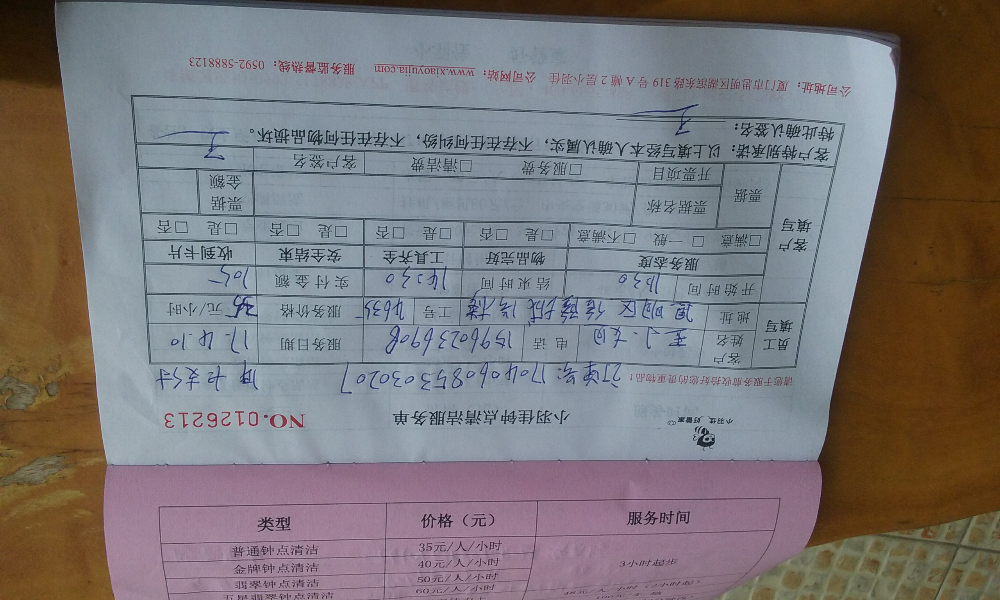 小羽佳 好管家
小羽佳钟点清洁服务单
NO.0126213
请您于服务前收拾好您的贵重物品！
订单号：1704060853030207
员工填写
客户姓名
电话
15960236908
服务日期
17.4.10
地址
工号
4635
服务价格
35元/小时
开始时间
1030
结束时间
1430
实付金额
105
客户填写
服务态度
物品完好
工具齐全
安全结束
收到卡片
□满意 □一般 □不满意
□是 □否
□是 □否
□是 □否
□是 □否
票据
票据名称
票据金额
开票项目
□服务费 □清洁费
客户签名
客户特别承诺：以上填写经本人确认属实，不存在任何纠纷，不存在任何物品损坏。
特此确认签名：
公司地址：厦门市思明区湖滨东路 319 号 A 幢 2 层小羽佳 公司网站：www.xiaoyujia.com 服务监督热线：0592-5888123
类型 价格（元） 服务时间
普通钟点清洁 35元/人/小时
金牌钟点清洁 40元/人/小时 3小时起步
翡翠钟点清洁 50元/人/小时
五星翡翠钟点清洁 60元/人/小时